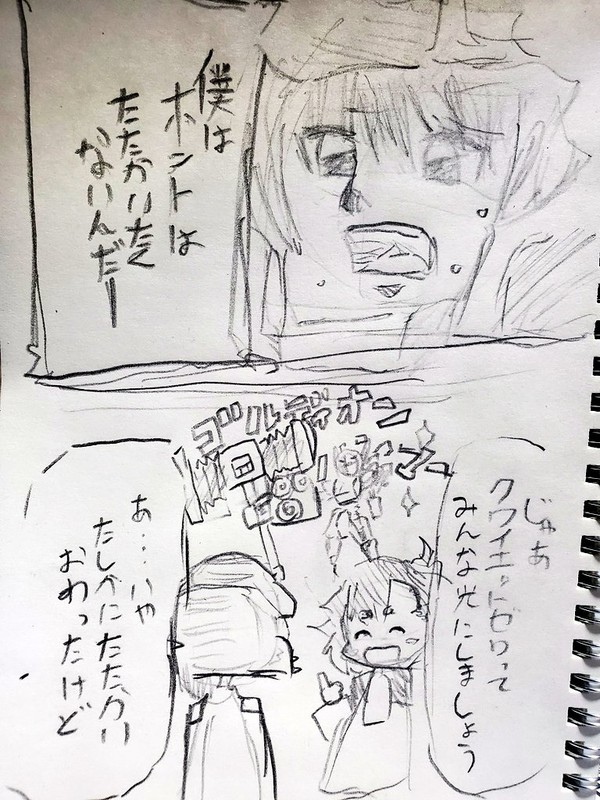 僕は
ホントは
たたかいたく
ないんだー
ゴルディオン
ハンマー
じゃあ
クワイエットゼロって
みんな光にしましょう
あ…いや
たしかにたたかい
おわったけど